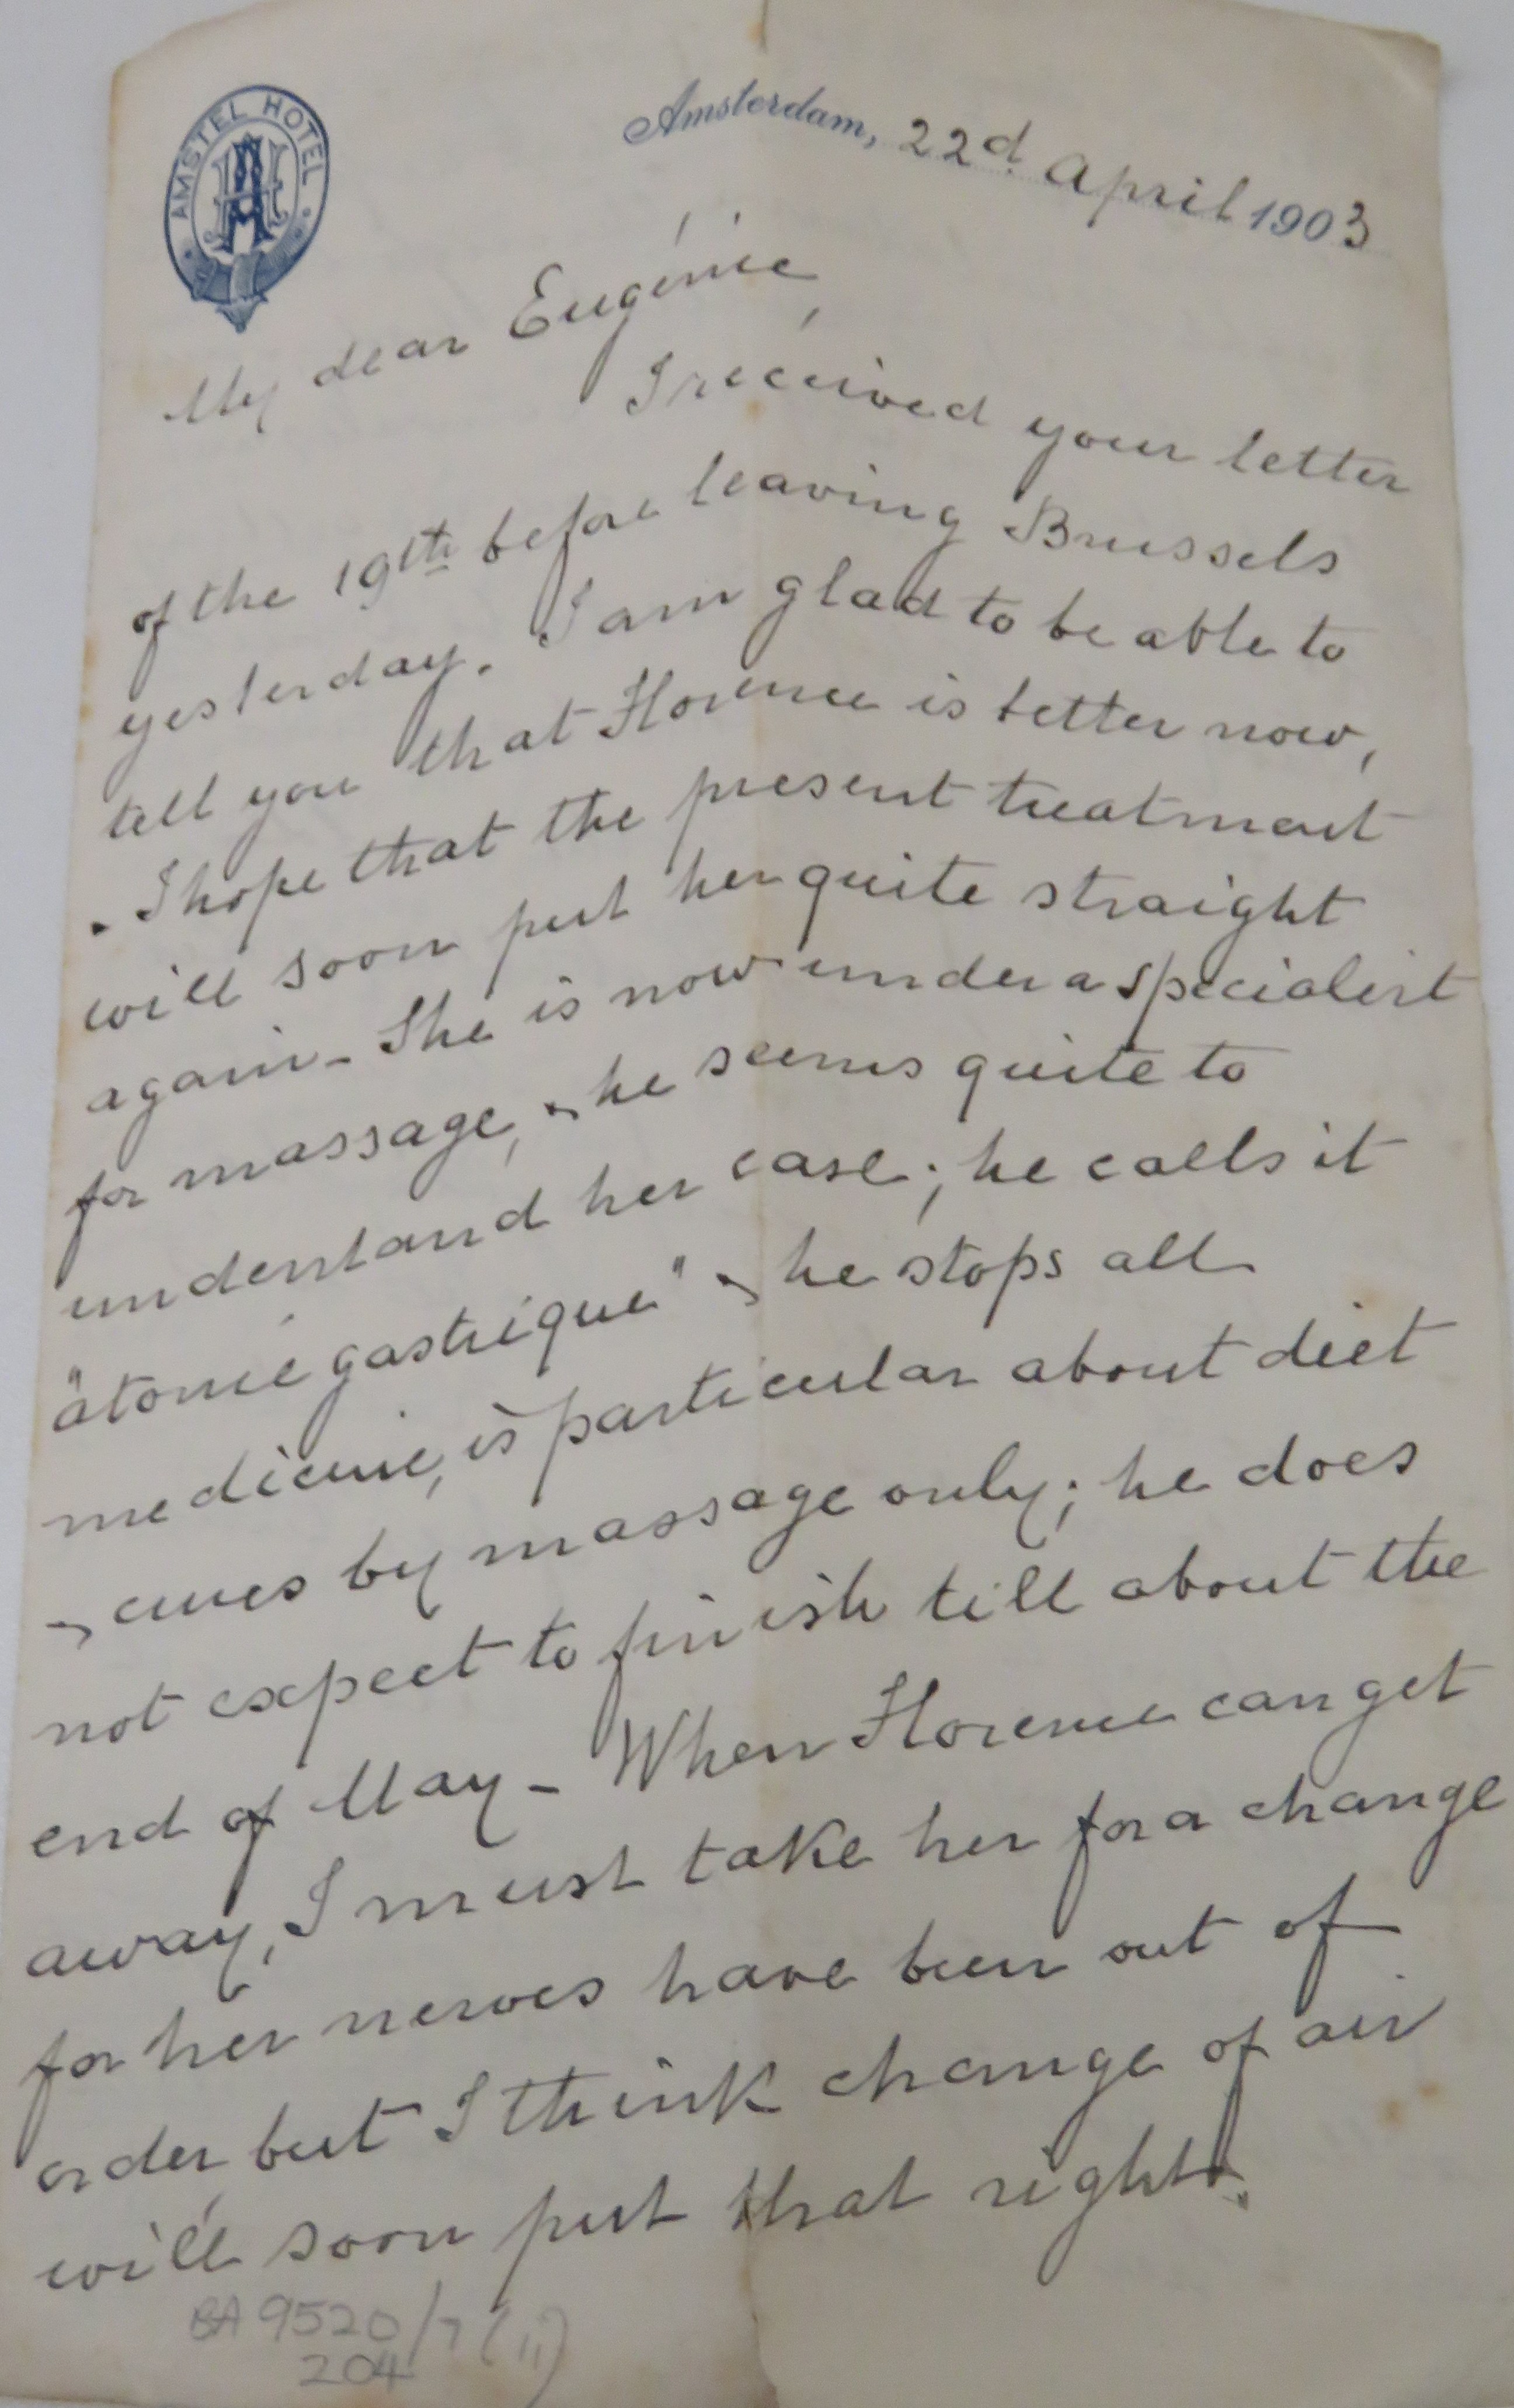 AMSTEL HOTEL
Amsterdam, 22d April 1903
My dear Eugénie,
I received your letter
of the 19th before leaving Brussels
yesterday. I am glad to be able to
tell you that Florence is better now,
. I hope that the present treatment
will soon put her quite straight
again - She is now under a specialist
for massage, & he seems quite to
understand her case; he calls it
"atonie gastrique" & he stops all
medicine, is particular about diet
& cures by massage only; he does
not expect to finish till about the
end of May - When Florence can get
away, I must take her for a change
for her nerves have been out of
order but I think change of air
will soon put that right.
BA 9520/7(ii)
204